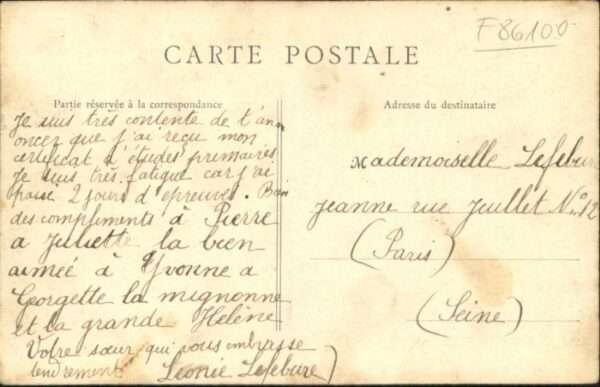 F86100
CARTE POSTALE
Partie réservée à la correspondance
Adresse du destinataire
Je suis très contente de t'an
oncez que j'ai reçu mon
certificat d'études primaires
Je suis très fatigue car j'ai
passe 2 jours d'epreuves. Bien
des compliments à Pierre
a Juliette la bien
aimée à Yvonne a
Georgette la mignonne
et la grande Hélène
Votre sœur qui vous embrasse
tendrement Léonie Lefebure
Mademoiselle Lefebure
Jeanne rue Juillet No 12
(Paris)
(Seine)